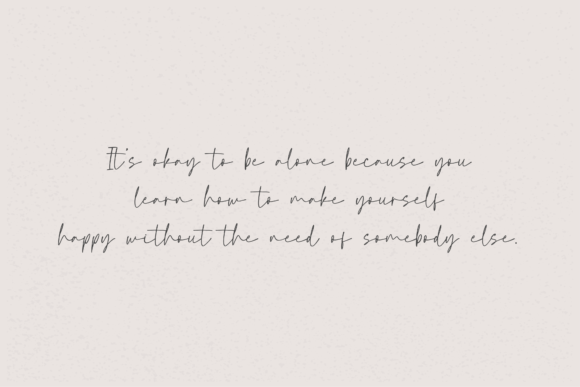 It's okay to be alone because you
learn how to make yourself
happy without the need of somebody else.